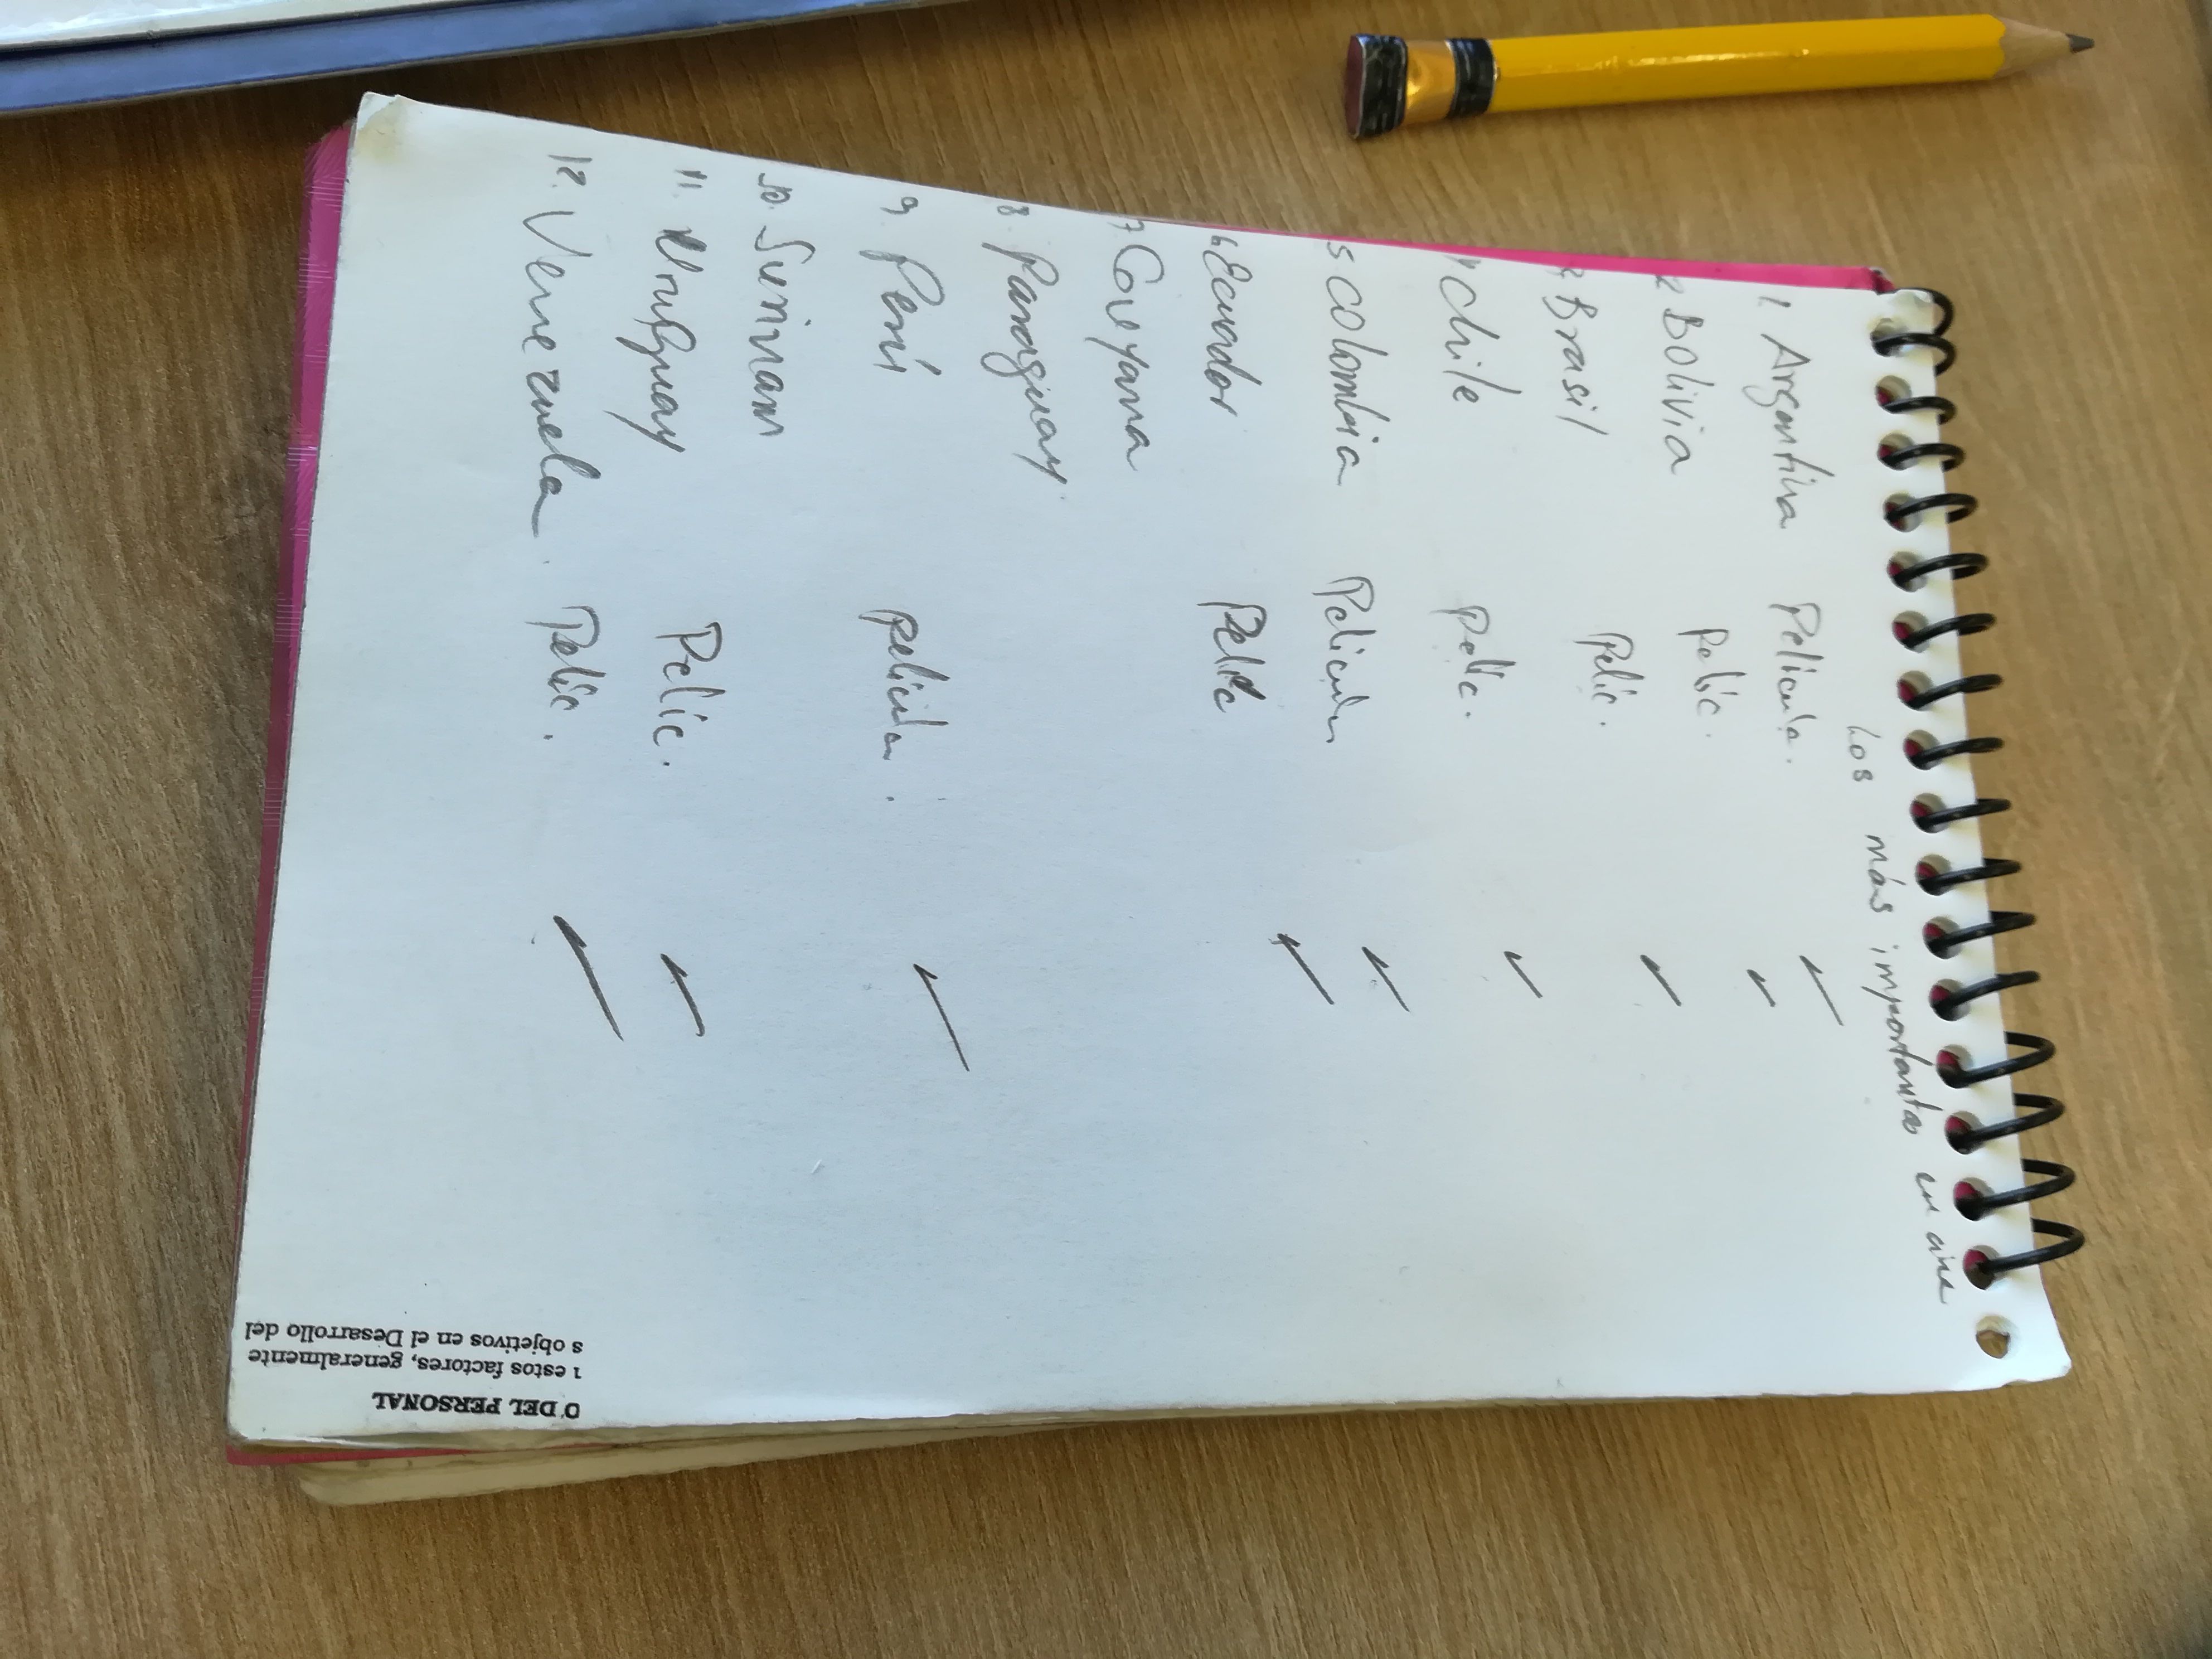 Los más importantes en cine
1. Argentina Pelicula.
2 Bolivia pelic.
3 Brasil Pelic.
4 Chile pelic.
5 Colombia Pelicula
6 Ecuador Pelic
7 Guyana
8 Paraguay
9 Perú pelicula.
10. Surinam
11. Uruguay Pelic.
12. Venezuela. Pelic.
O DEL PERSONAL
estos factores, generalmente
s objetivos en el Desarrollo del